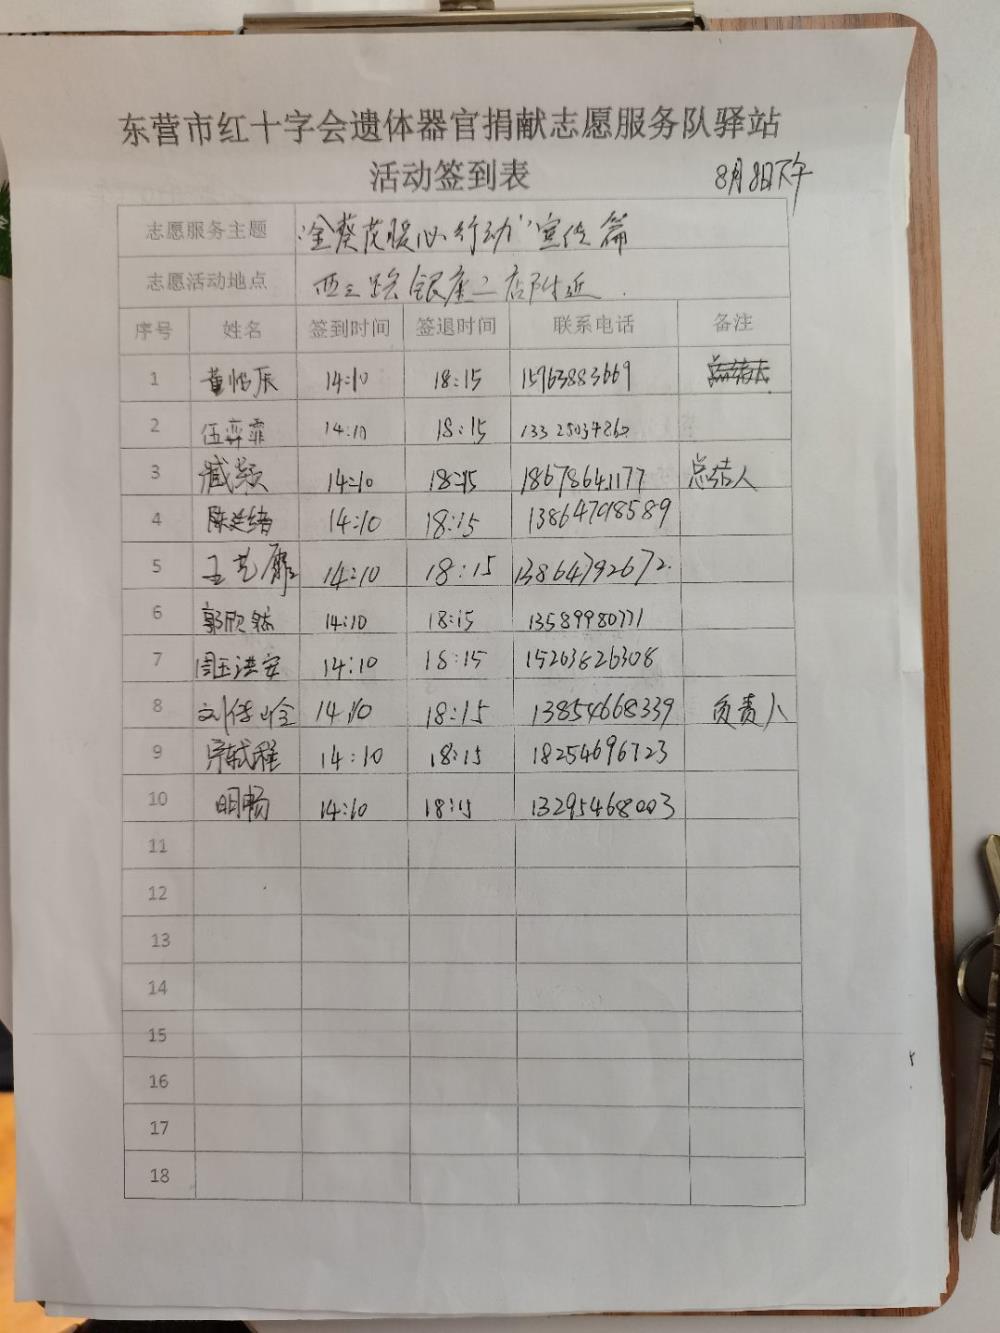 东营市红十字会遗体器官捐献志愿服务队驿站
活动签到表
8月8日下午
志愿服务主题 "金葵花暖心行动"宣传篇
志愿活动地点 西三路银座二店附近.
序号 姓名 签到时间 签退时间 联系电话 备注
1 14:10 18:15 15963883669
2 伍弈霏 14:10 18:15 13325034860
3 臧颖 14:10 18:15 18678641177 总结人
4 14:10 18:15 13864798589
5 王艺 14:10 18:15 13864792672.
6 郭欣 14:10 18:15 13589980771
7 周玉洪安 14:10 18:15 15263626308
8 刘佳 14:10 18:15 13854668339 负责人
9 14:10 18:15 18254696723
10 明畅 14:10 18:15 13295468003
11
12
13
14
15
16
17
18